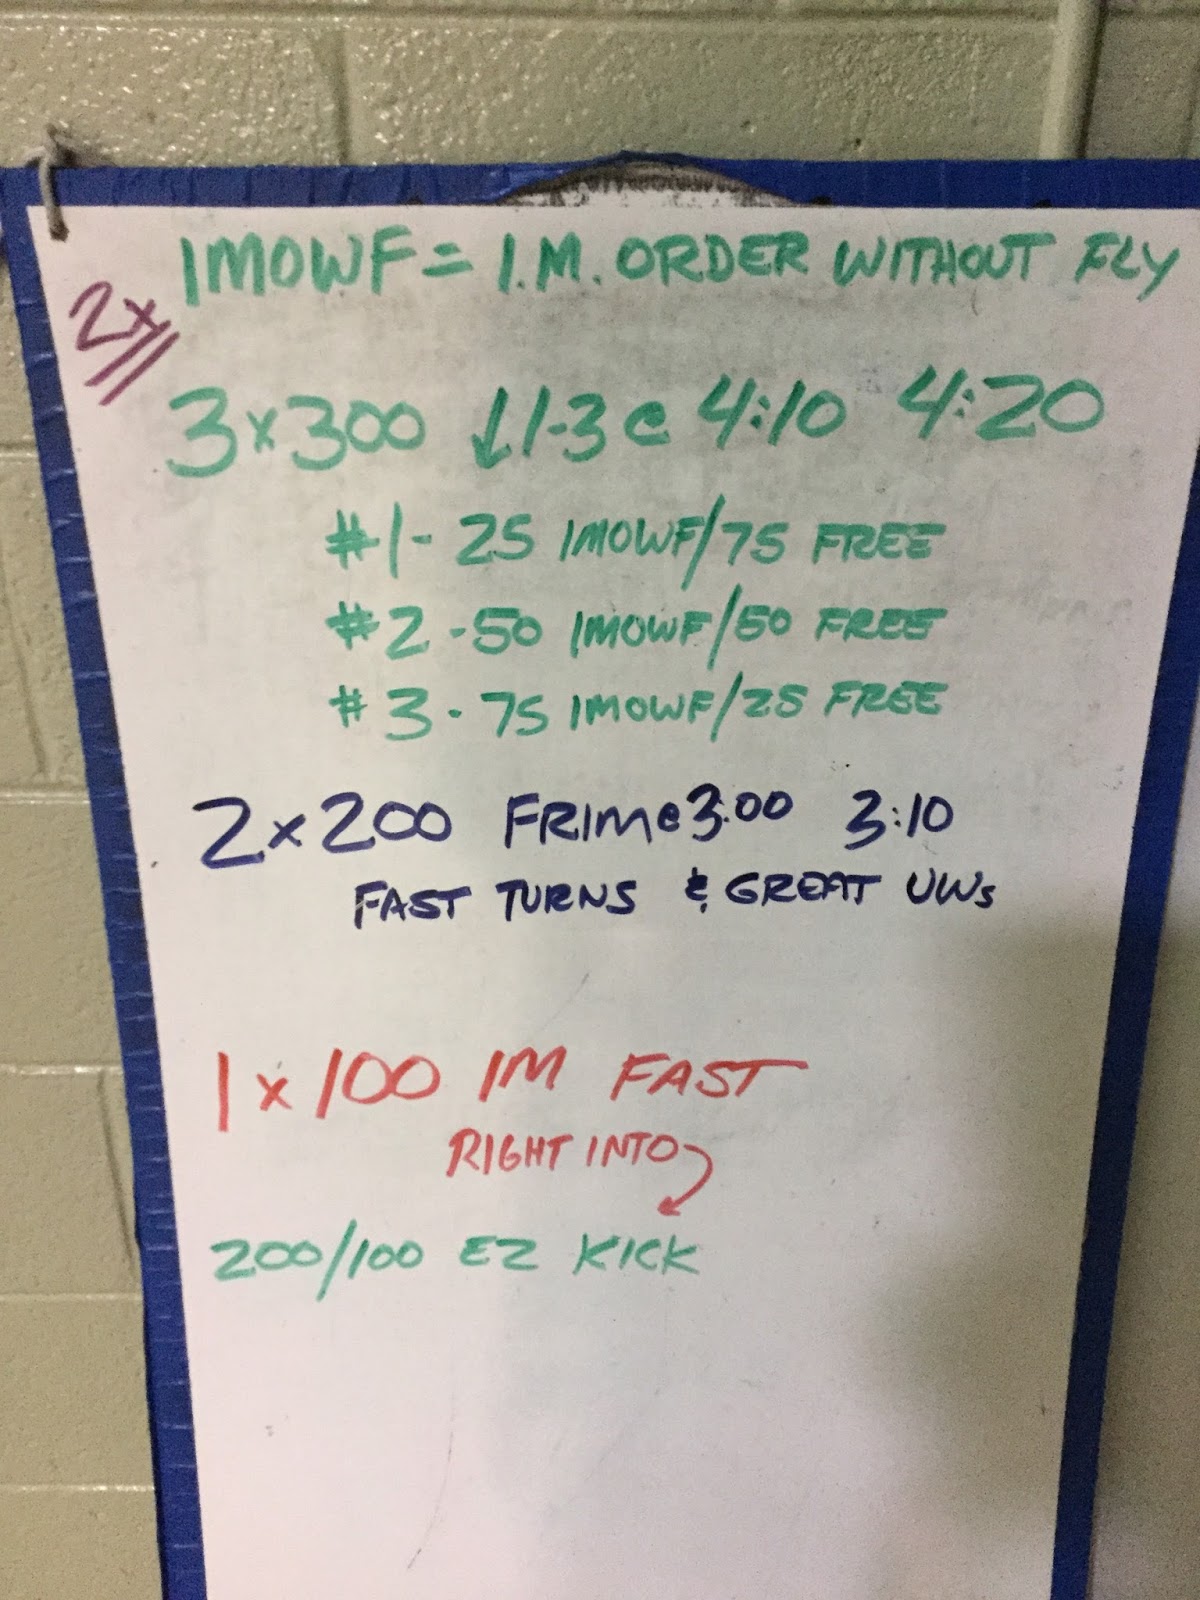 IMOWF = I.M. ORDER WITHOUT FLY
2x
3x300 ↓1-3 @ 4:10 4:20
#1- 25 IMOWF/75 FREE
#2-50 IMOWF/50 FREE
#3-75 IMOWF/25 FREE
2x200 FRIM@3:00 3:10
FAST TURNS & GREAT UWs
1x100 IM FAST
RIGHT INTO
200/100 EZ KICK